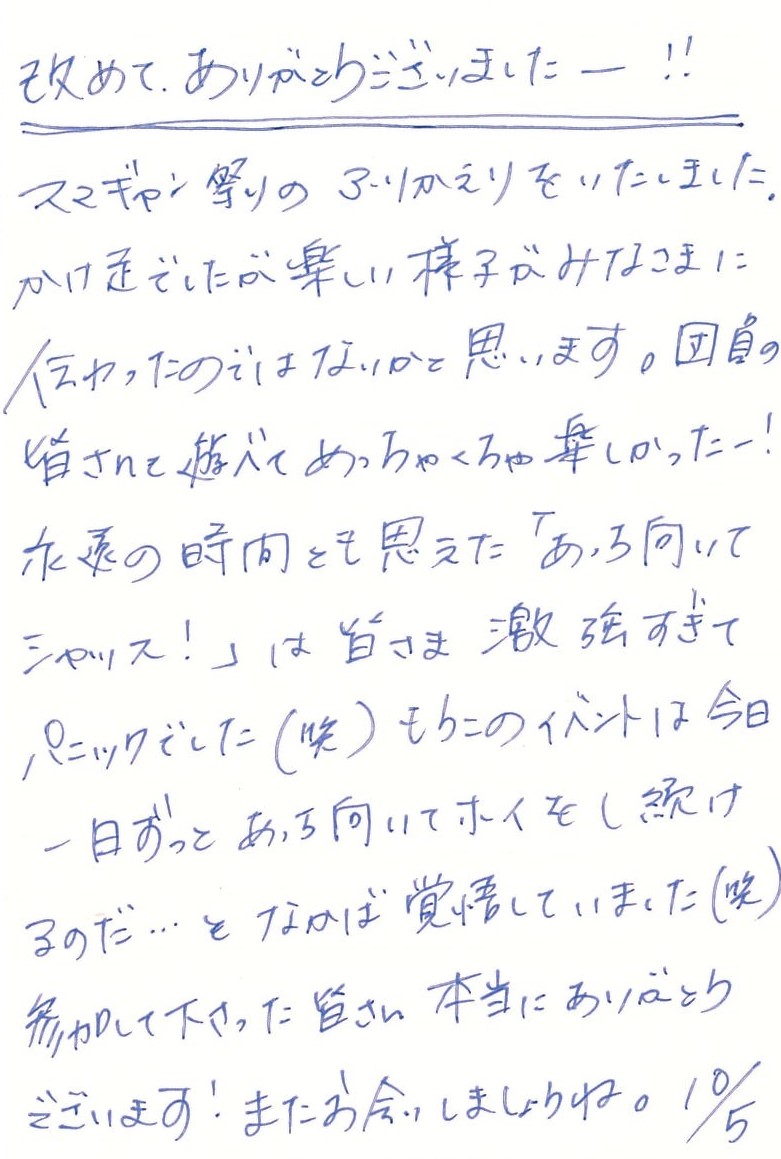 改めて、ありがとうございましたー!!
スマギャン祭りのふりかえりをいたしました。
かけ足でしたが楽しい様子がみなさまに
伝わったのではないかと思います。団員の
皆さんと遊べてめっちゃくちゃ楽しかったー!
永遠の時間とも思えた「あっち向いて
シャッス!」は皆さま激強すぎて
パニックでした(笑)もうこのイベントは今日
一日ずっとあっち向いてホイをし続け
るのだ…となかば覚悟していました(笑)
参加して下さった皆さん本当にありがとう
ございます!またお会いしましょうね。10/5